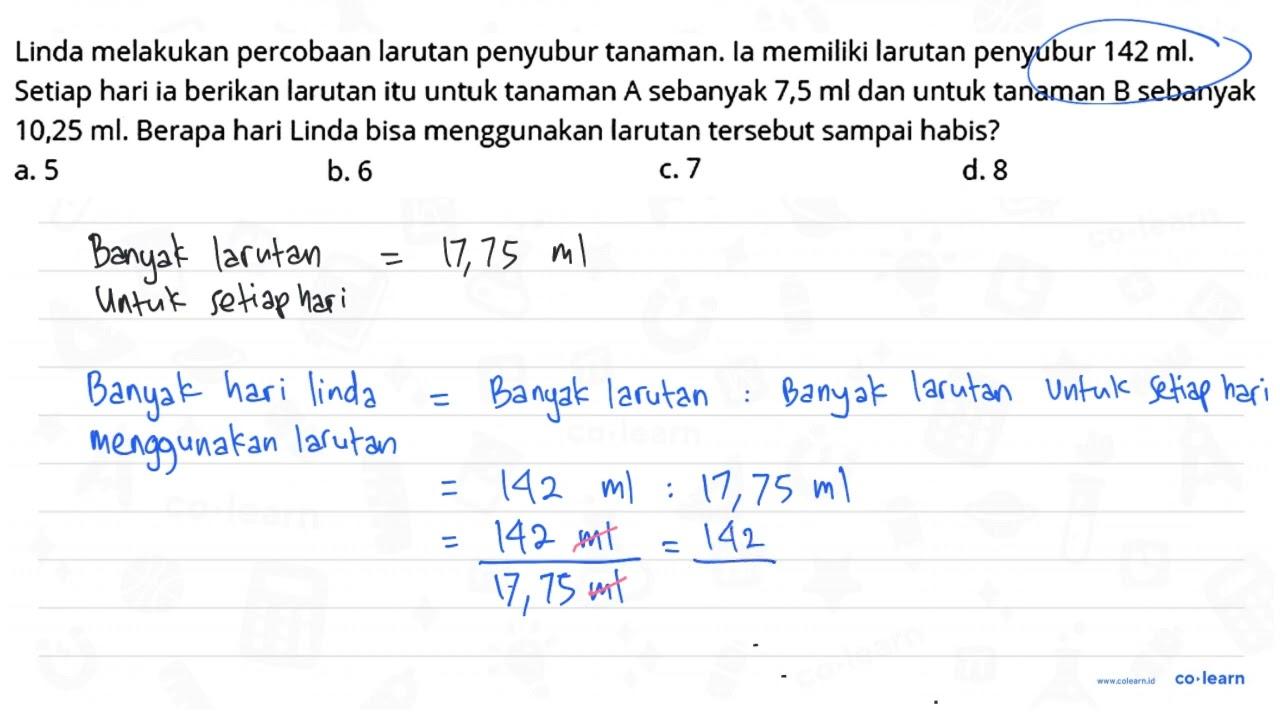 Linda melakukan percobaan larutan penyubur tanaman. Ia memiliki larutan penyubur 142 ml.
Setiap hari ia berikan larutan itu untuk tanaman A sebanyak 7,5 ml dan untuk tanaman B sebanyak
10,25 ml. Berapa hari Linda bisa menggunakan larutan tersebut sampai habis?
a. 5 b. 6 c. 7 d. 8
Banyak larutan = 17,75 ml
Untuk setiap hari
Banyak hari linda = Banyak larutan : Banyak larutan Untuk setiap hari
menggunakan larutan
= 142 ml : 17,75 ml
= 142 ml = 142
17,75 ml
www.colearn.id co·learn